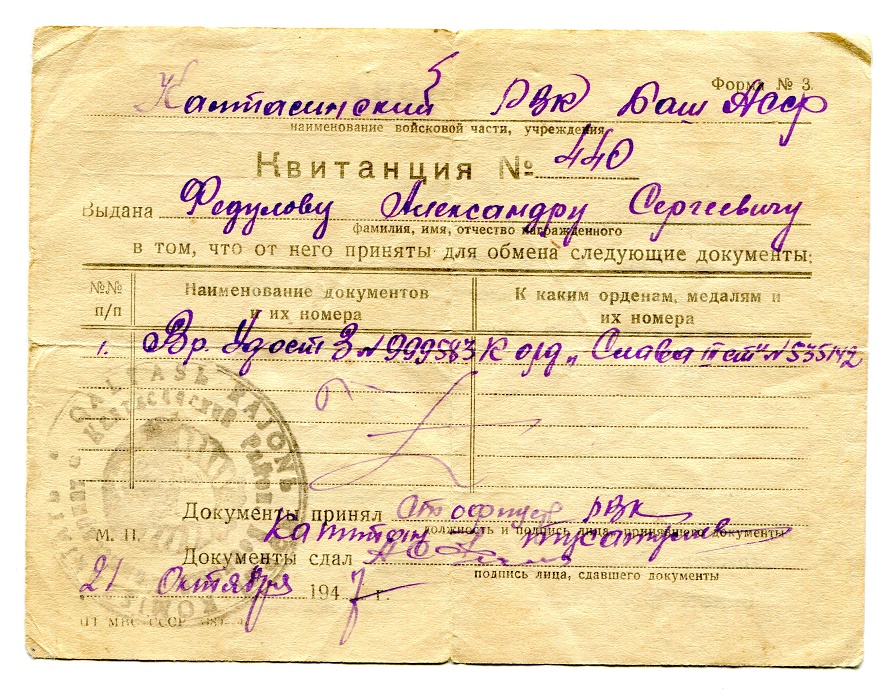 Форма № 3
Калтасинский РВК Баш АССР
наименование войсковой части, учреждения
Квитанция № 440
Выдана Федулову Александру Сергеевичу
фамилия, имя, отчество награжденного
в том, что от него приняты для обмена следующие документы:
№№ п/п
Наименование документов и их номера
К каким орденам, медалям и их номера
1. Вр. Удост З № 999583 К орд „Слава III ст" № 535142
QALTASЬ RAJONЬ
Калтасинский район
Документы принял Ст офицер РВК
должность и подпись лица, принявшего документы
Капитан
М. П.
Документы сдал
подпись лица, сдавшего документы
21 Октября 1947 г.